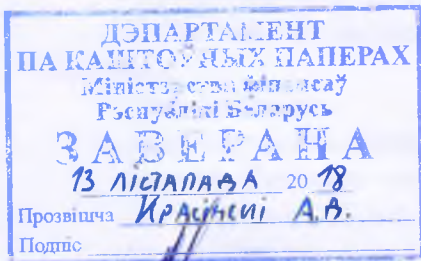 ДЭПАРТАМЕНТ
ПА КАШТОЎНЫХ ПАПЕРАХ
Міністэрства фінансаў
Рэспублікі Беларусь
ЗАВЕРАНА
13 ЛІСТАПАДА 2018
Прозвішча А.В.
Подпіс